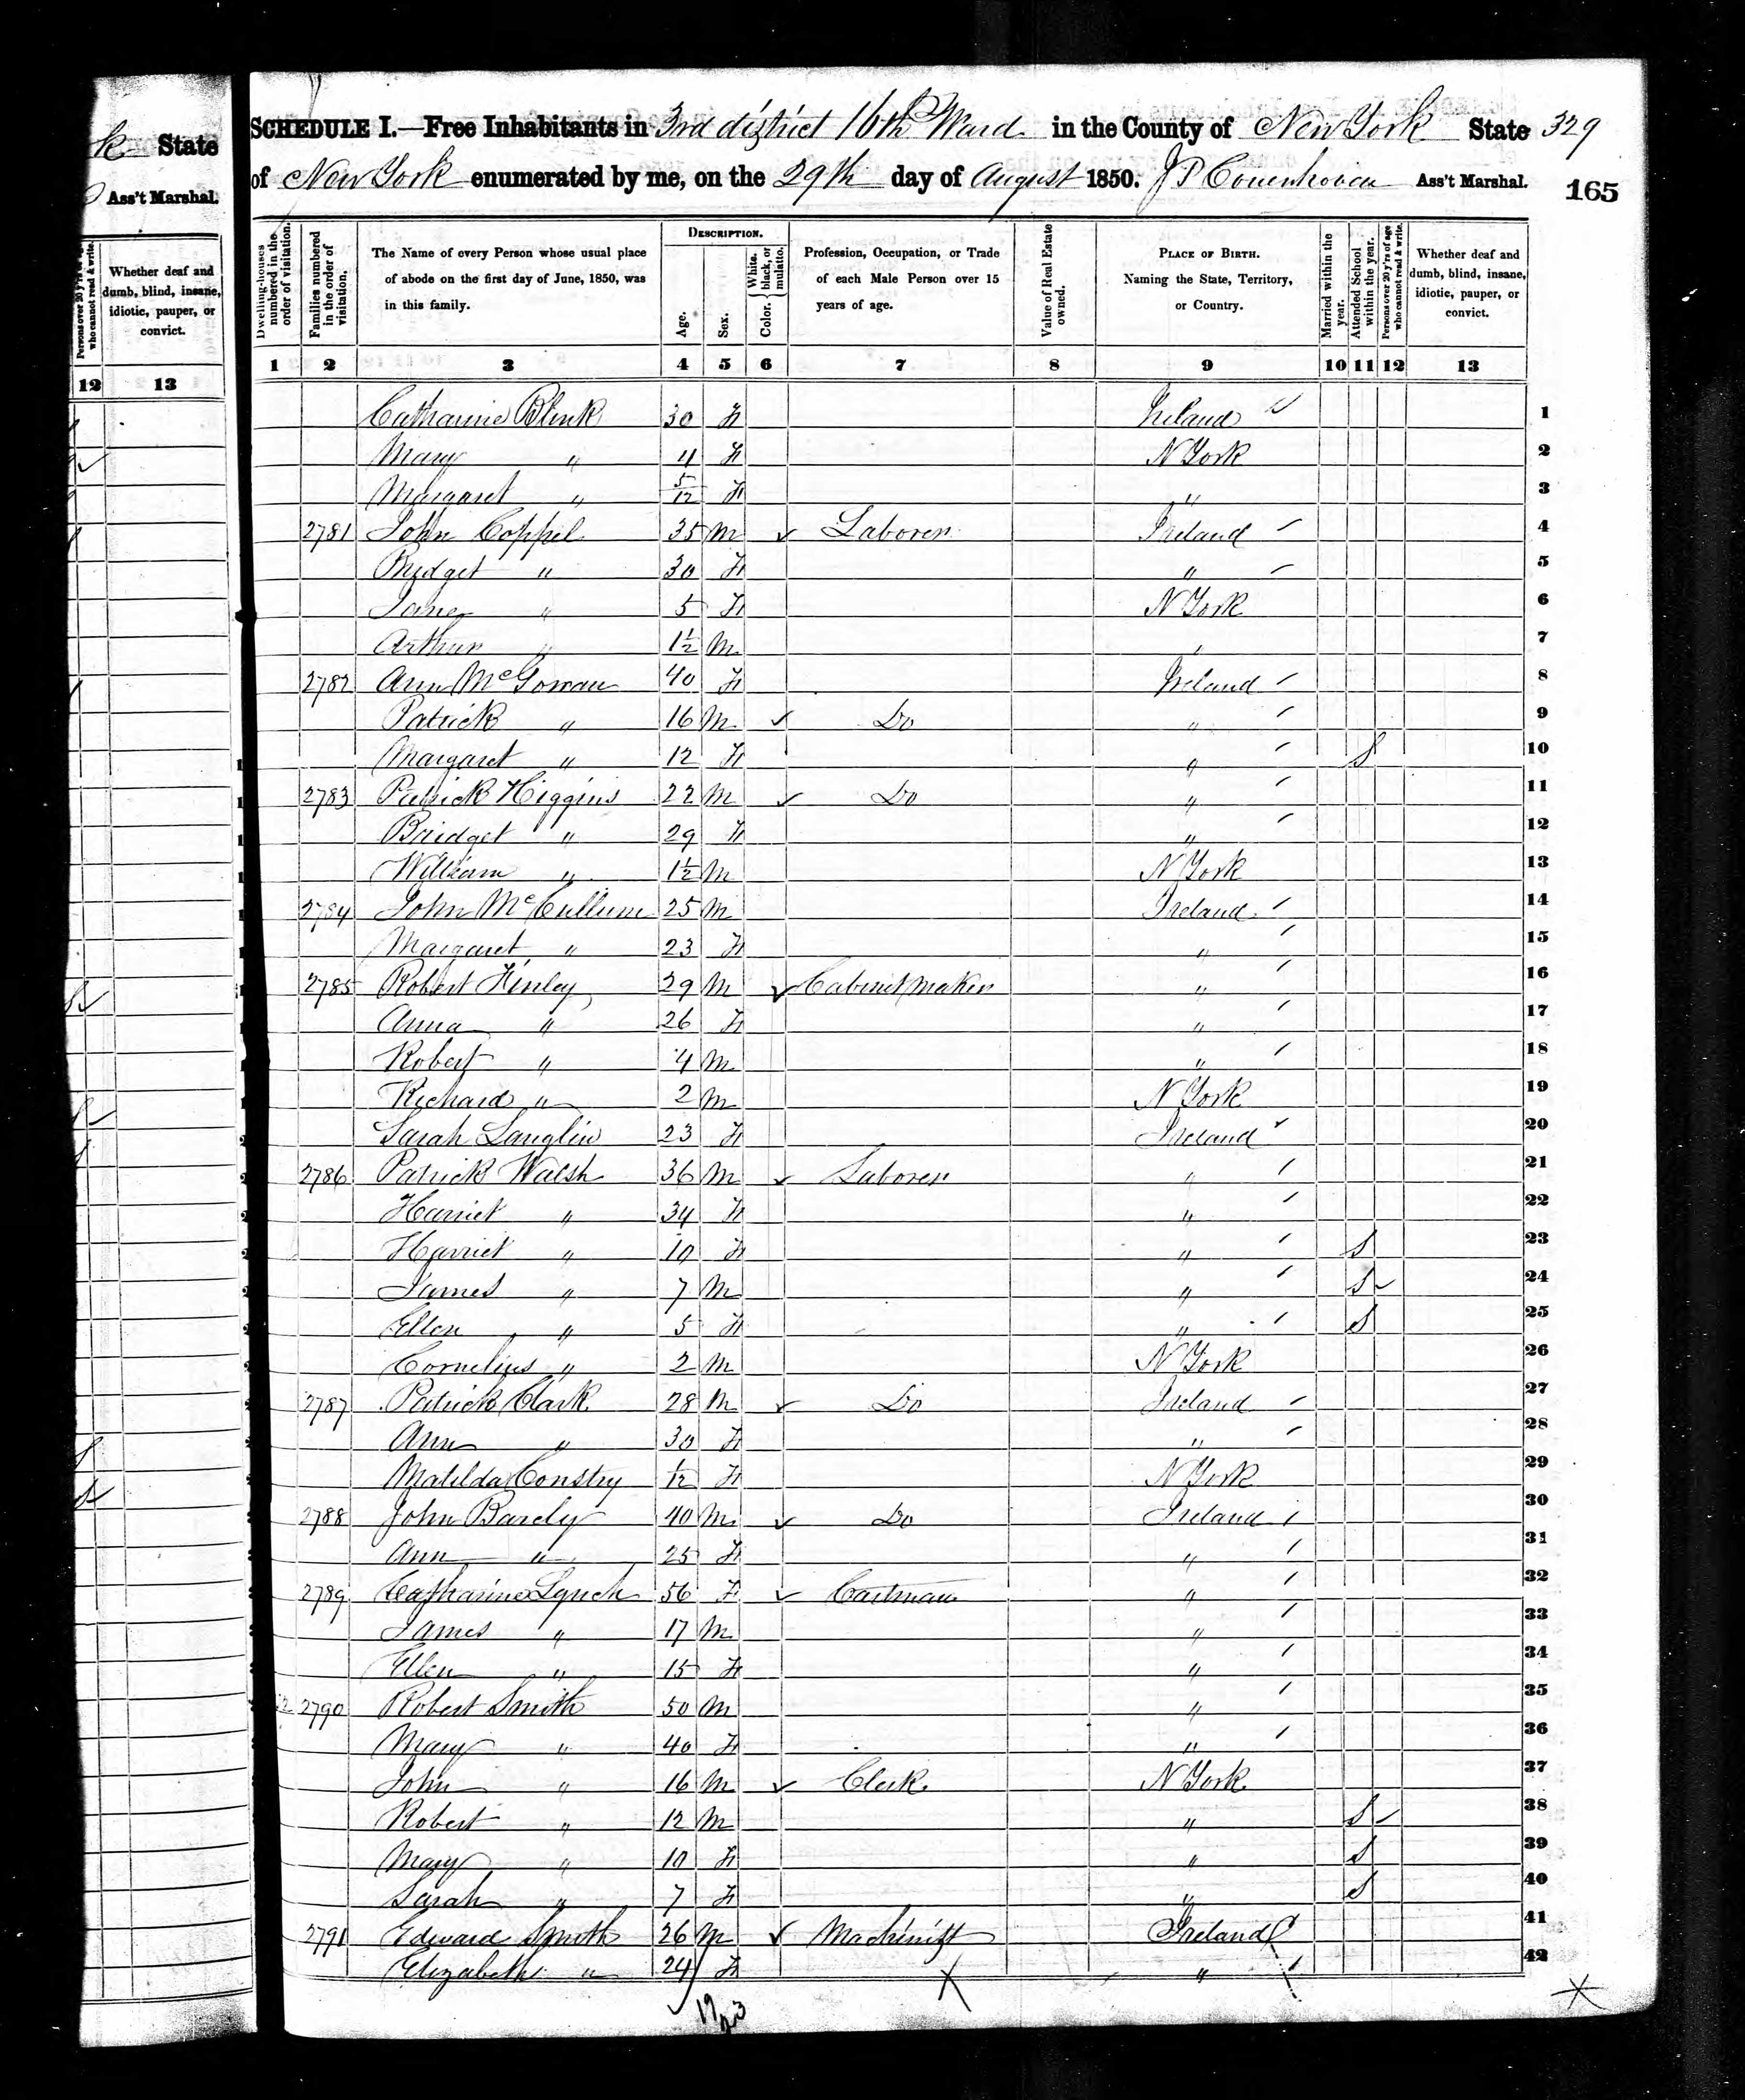 k State
Ass't Marshal.
Persons over 20 y'rs of age who cannot read & write.
Whether deaf and dumb, blind, insane, idiotic, pauper, or convict.
12 13
SCHEDULE I.—Free Inhabitants in 3rd district 16th Ward in the County of New York State 329
of New York enumerated by me, on the 29th day of August 1850. J P Couenhoven Ass't Marshal. 165
Dwelling-houses numbered in the order of visitation.
Families numbered in the order of visitation.
The Name of every Person whose usual place of abode on the first day of June, 1850, was in this family.
DESCRIPTION.
Age.
Sex.
Color. { White, black, or mulatto.
Profession, Occupation, or Trade of each Male Person over 15 years of age.
Value of Real Estate owned.
PLACE OF BIRTH. Naming the State, Territory, or Country.
Married within the year.
Attended School within the year.
Persons over 20 y'rs of age who cannot read & write.
Whether deaf and dumb, blind, insane, idiotic, pauper, or convict.
1 2 3 4 5 6 7 8 9 10 11 12 13
Catharine Blink 30 F Ireland 1
Mary " 4 F N York 2
Margaret " 5/12 F " 3
2781 John Coppel 35 M Laborer Ireland 4
Bridget " 30 F " 5
Jane " 5 F N York 6
Arthur " 1½ M " 7
2782 Ann McGowan 40 F Ireland 8
Patrick " 16 M Do " 9
Margaret " 12 F " S 10
2783 Patrick Higgins 22 M Do " 11
Bridget " 29 F " 12
William " 1½ M N York 13
2784 John McCullum 25 M Ireland 14
Margaret " 23 F " 15
2785 Robert Finley 29 M Cabinet Maker " 16
Anna " 26 F " 17
Robert " 4 M " 18
Richard " 2 M N York 19
Sarah Langlin 23 F Ireland 20
2786 Patrick Walsh 36 M Laborer " 21
Harriet " 34 F " 22
Harriet " 10 F " S 23
James " 7 M " S 24
Ellen " 5 F " S 25
Cornelius " 2 M N York 26
2787 Patrick Clark 28 M Do Ireland 27
Ann " 30 F " 28
Matilda Constry 1/12 F N York 29
2788 John Barely 40 M Do Ireland 30
Ann " 25 F " 31
2789 Catharine Lynch 56 F Cartman " 32
James " 17 M " 33
Ellen " 15 F " 34
2790 Robert Smith 50 M " 35
Mary " 40 F " 36
John " 16 M Clerk N York 37
Robert " 12 M " S 38
Mary " 10 F " S 39
Sarah " 7 F " S 40
2791 Edward Smith 26 M Machinist Ireland 41
Elizabeth " 24 F " 42
19
23